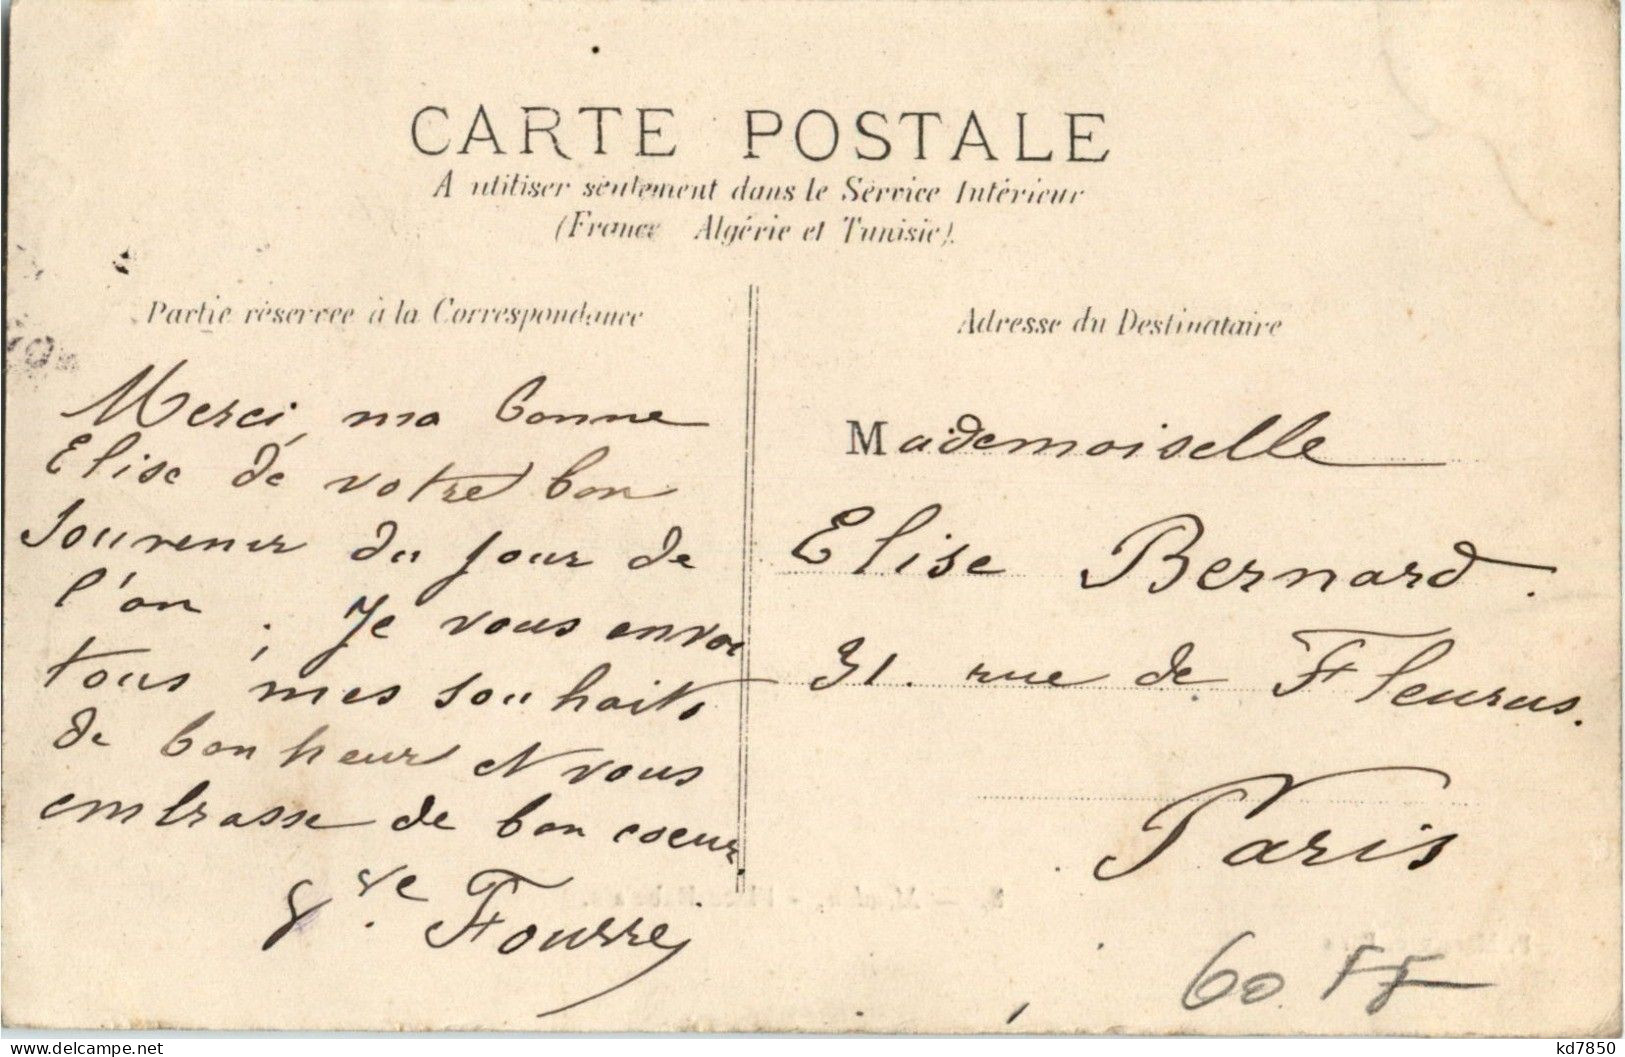 CARTE POSTALE
A utiliser seulement dans le Service Intérieur
(France Algérie et Tunisie).
Partie réservée à la Correspondance
Merci, ma bonne
Elise de votre bon
souvenir du jour de
l'an ; Je vous envoi
tous mes souhaits
de bonheur et vous
embrasse de bon coeur
Vve Fourré
Adresse du Destinataire
Mademoiselle
Elise Bernard.
31. rue de Fleurus.
Paris
60 FF
delcampe.net
kd7850